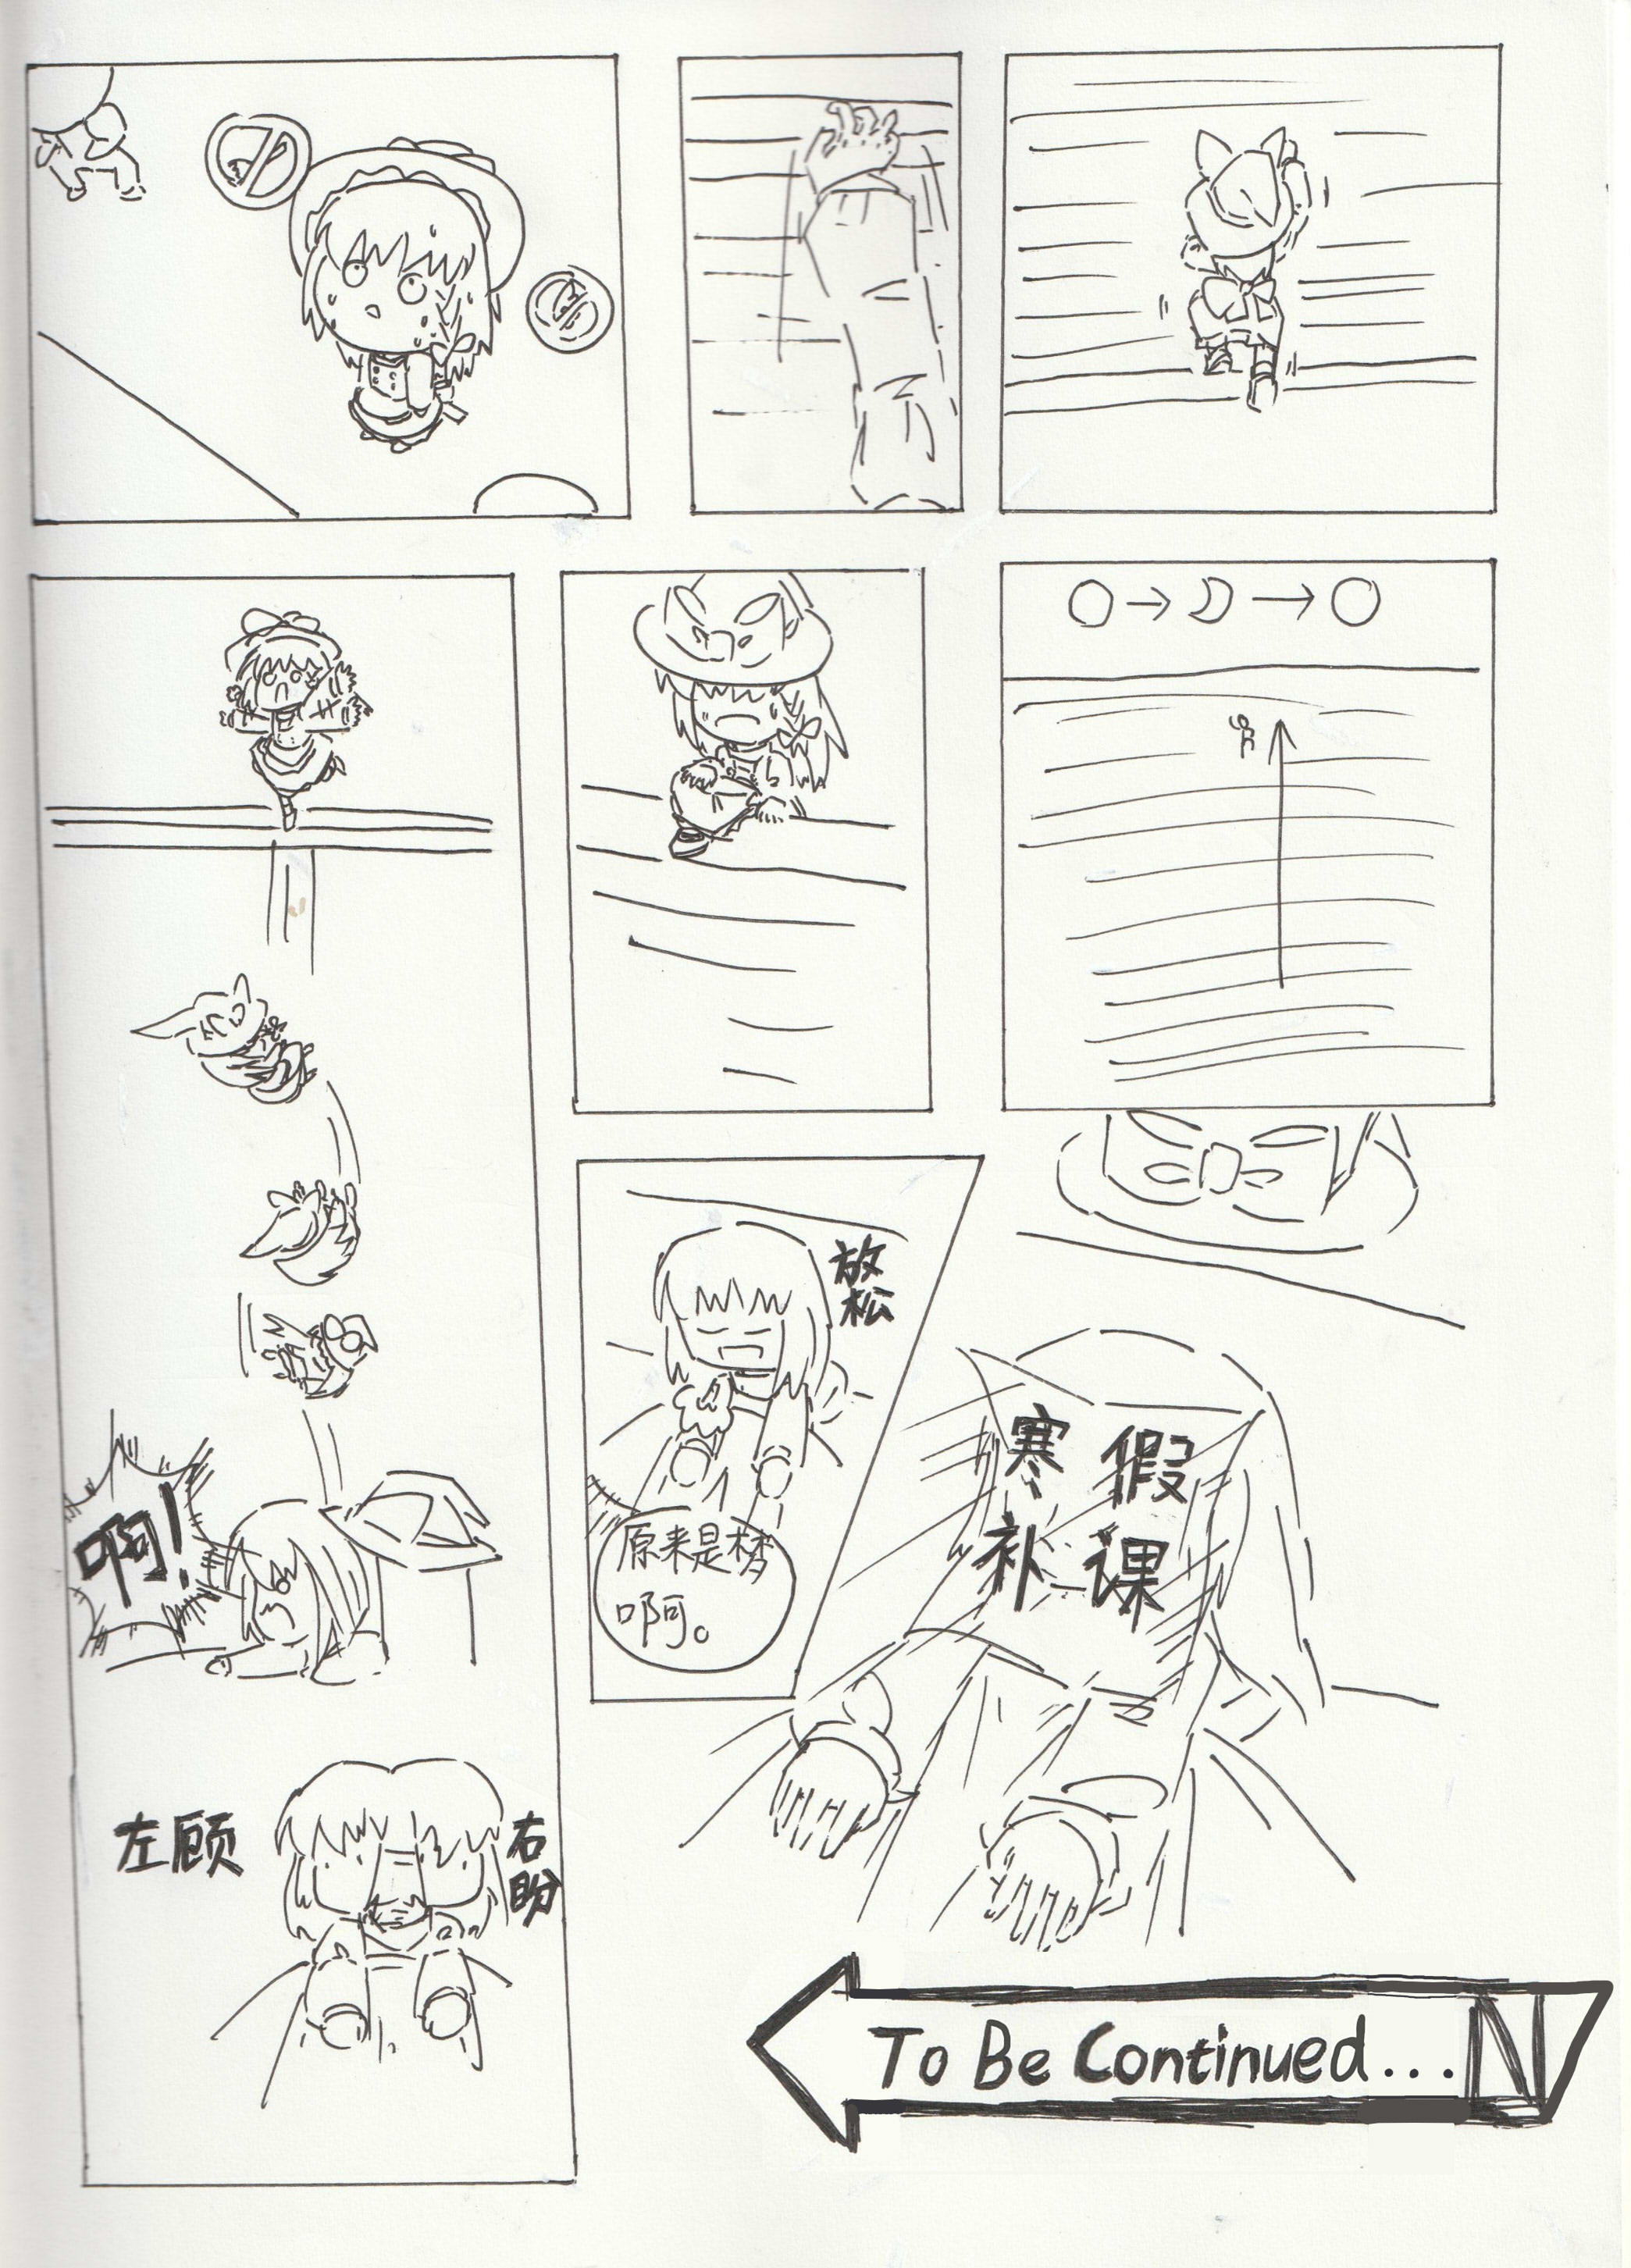 啊!
左顾
右盼
放松
原来是梦
啊。
寒假
补课
To Be Continued...